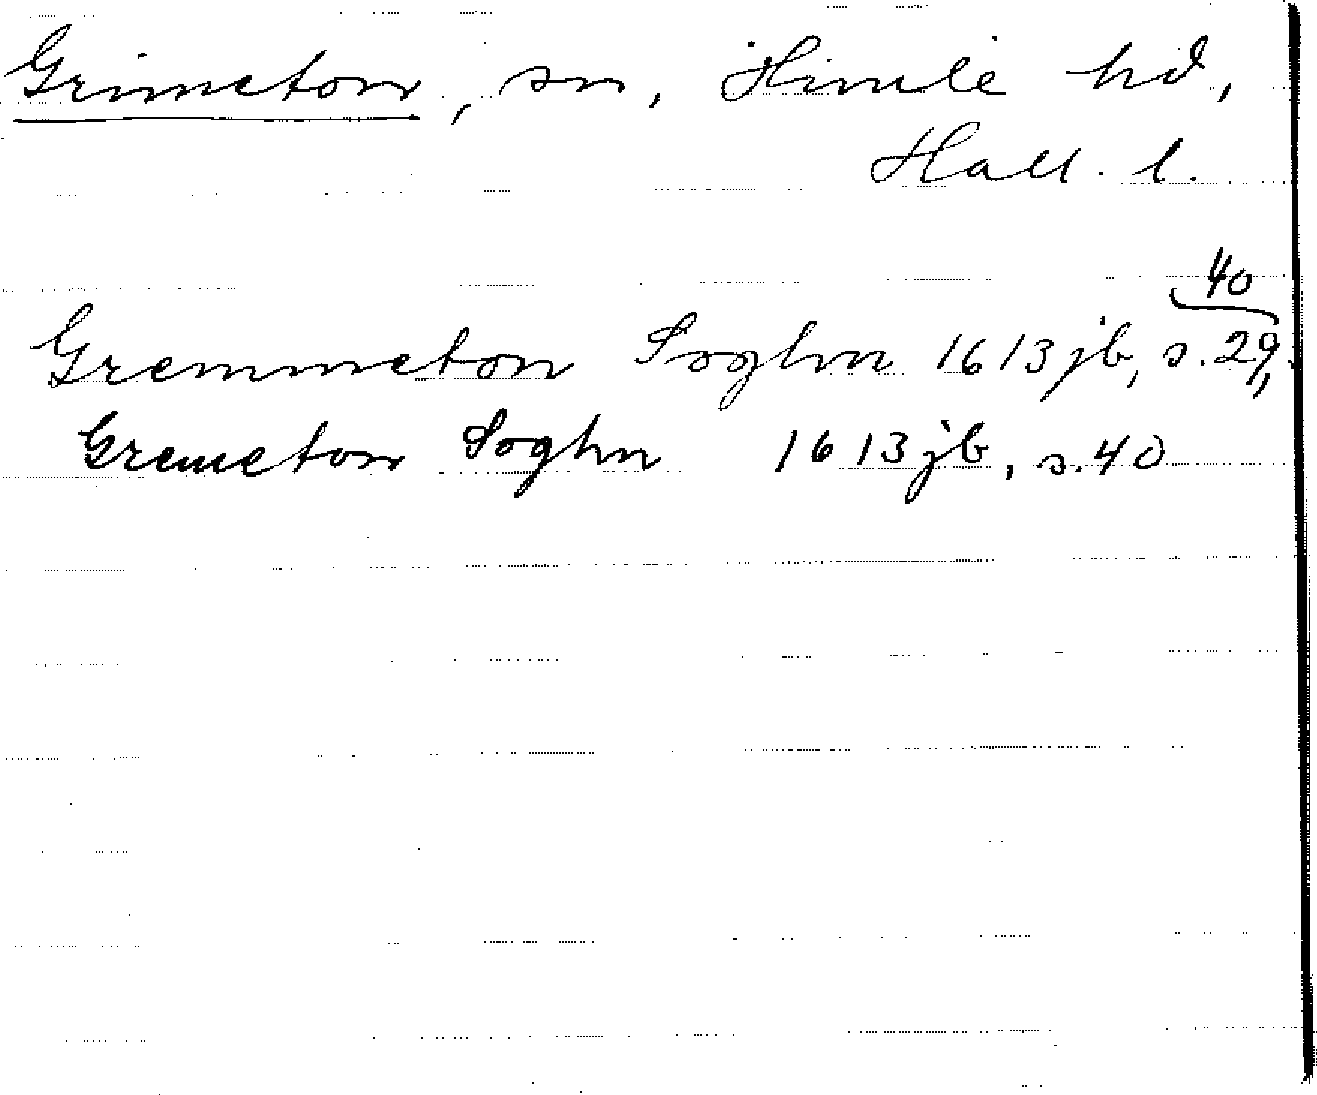 Grimeton, sn, Himle hd,
Hall. l.
40
Gremmeton Soghn 1613 jb, s. 29,
Gremeton Soghn 1613 jb, s. 40